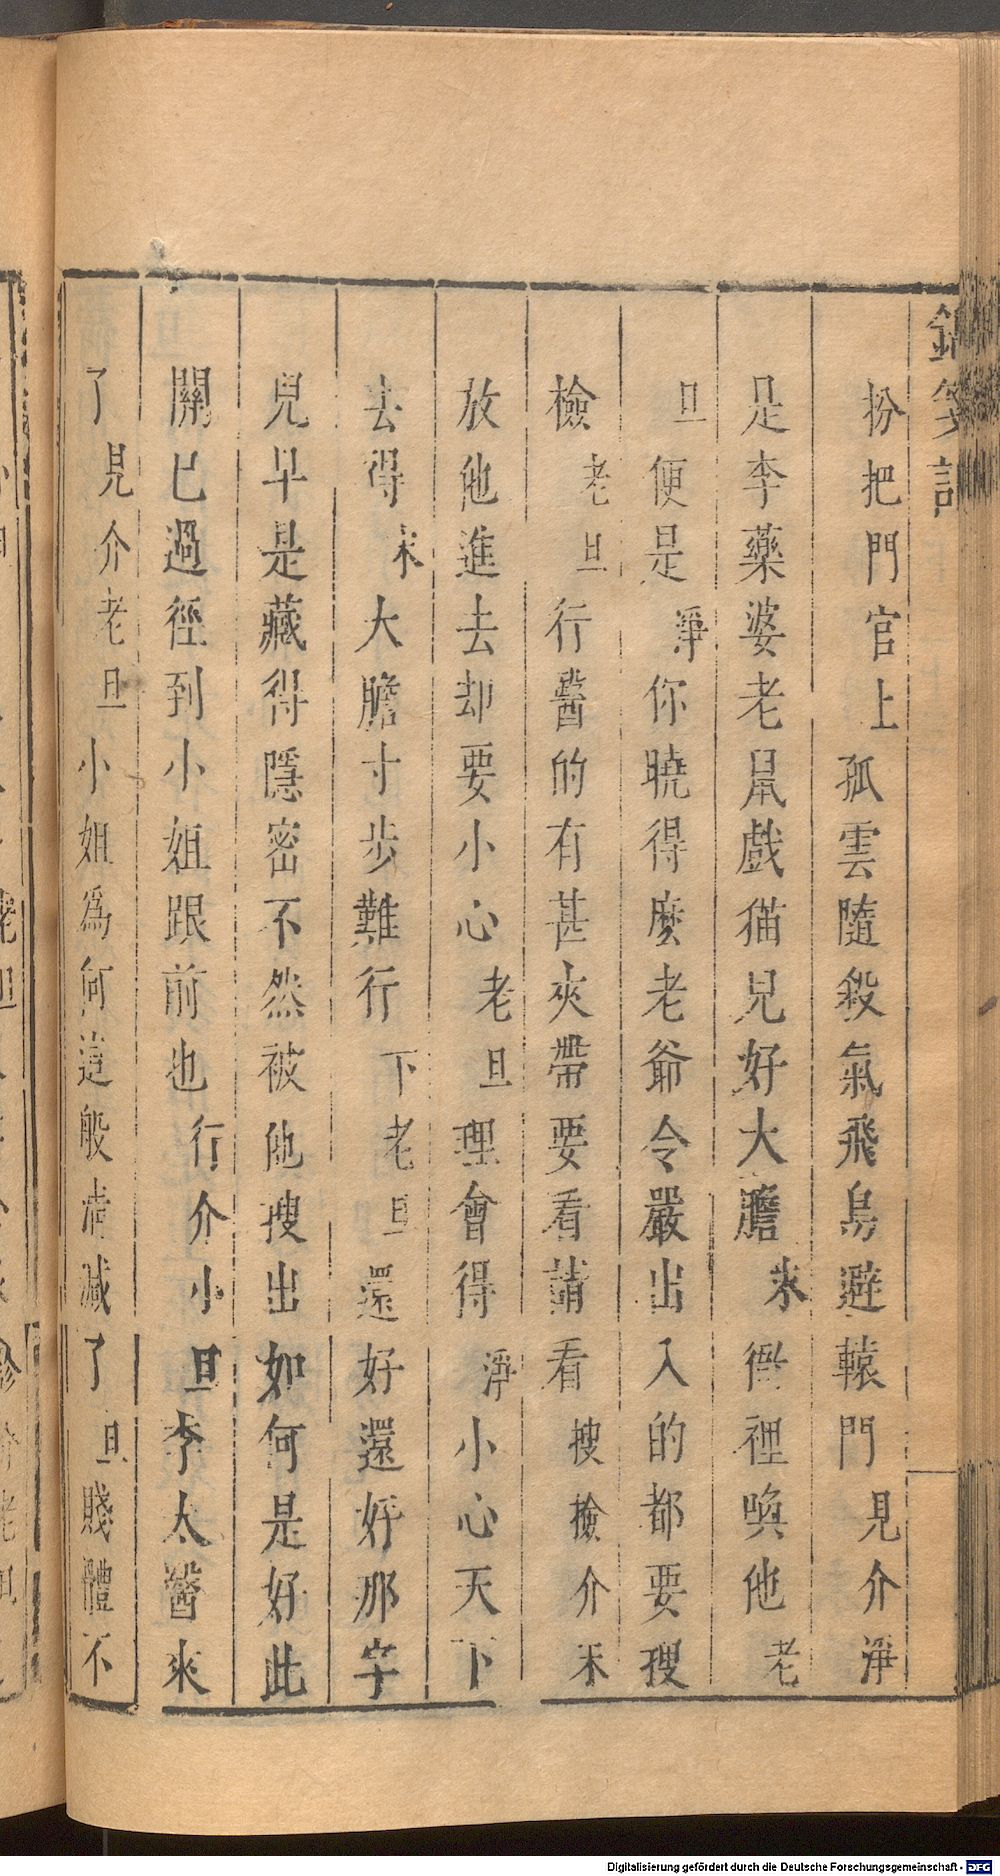 錦箋記
扮把門官上孤雲隨殺氣飛鳥避轅門見介淨
是李藥婆老鼠戲猫兒好大膽末衙裡喚他老
旦便是淨你曉得麼老爺令嚴出入的都要搜
檢老旦行醫的有甚夾帶要看請看搜撿介末
放他進去却要小心老旦理會得淨小心天下
去得末大膽寸步難行下老旦還好還好那字
兒早是藏得隱密不然被他搜出如何是好此
關已過徑到小姐跟前也行介小旦李太醫來
了見介老旦小姐為何這般清減了旦賤體不
Digitalisierung gefördert durch die Deutsche Forschungsgemeinschaft - DFG